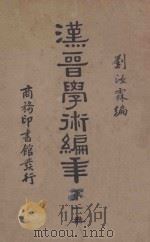 劉汝霖編
漢晉學術編年
商務印書館發行